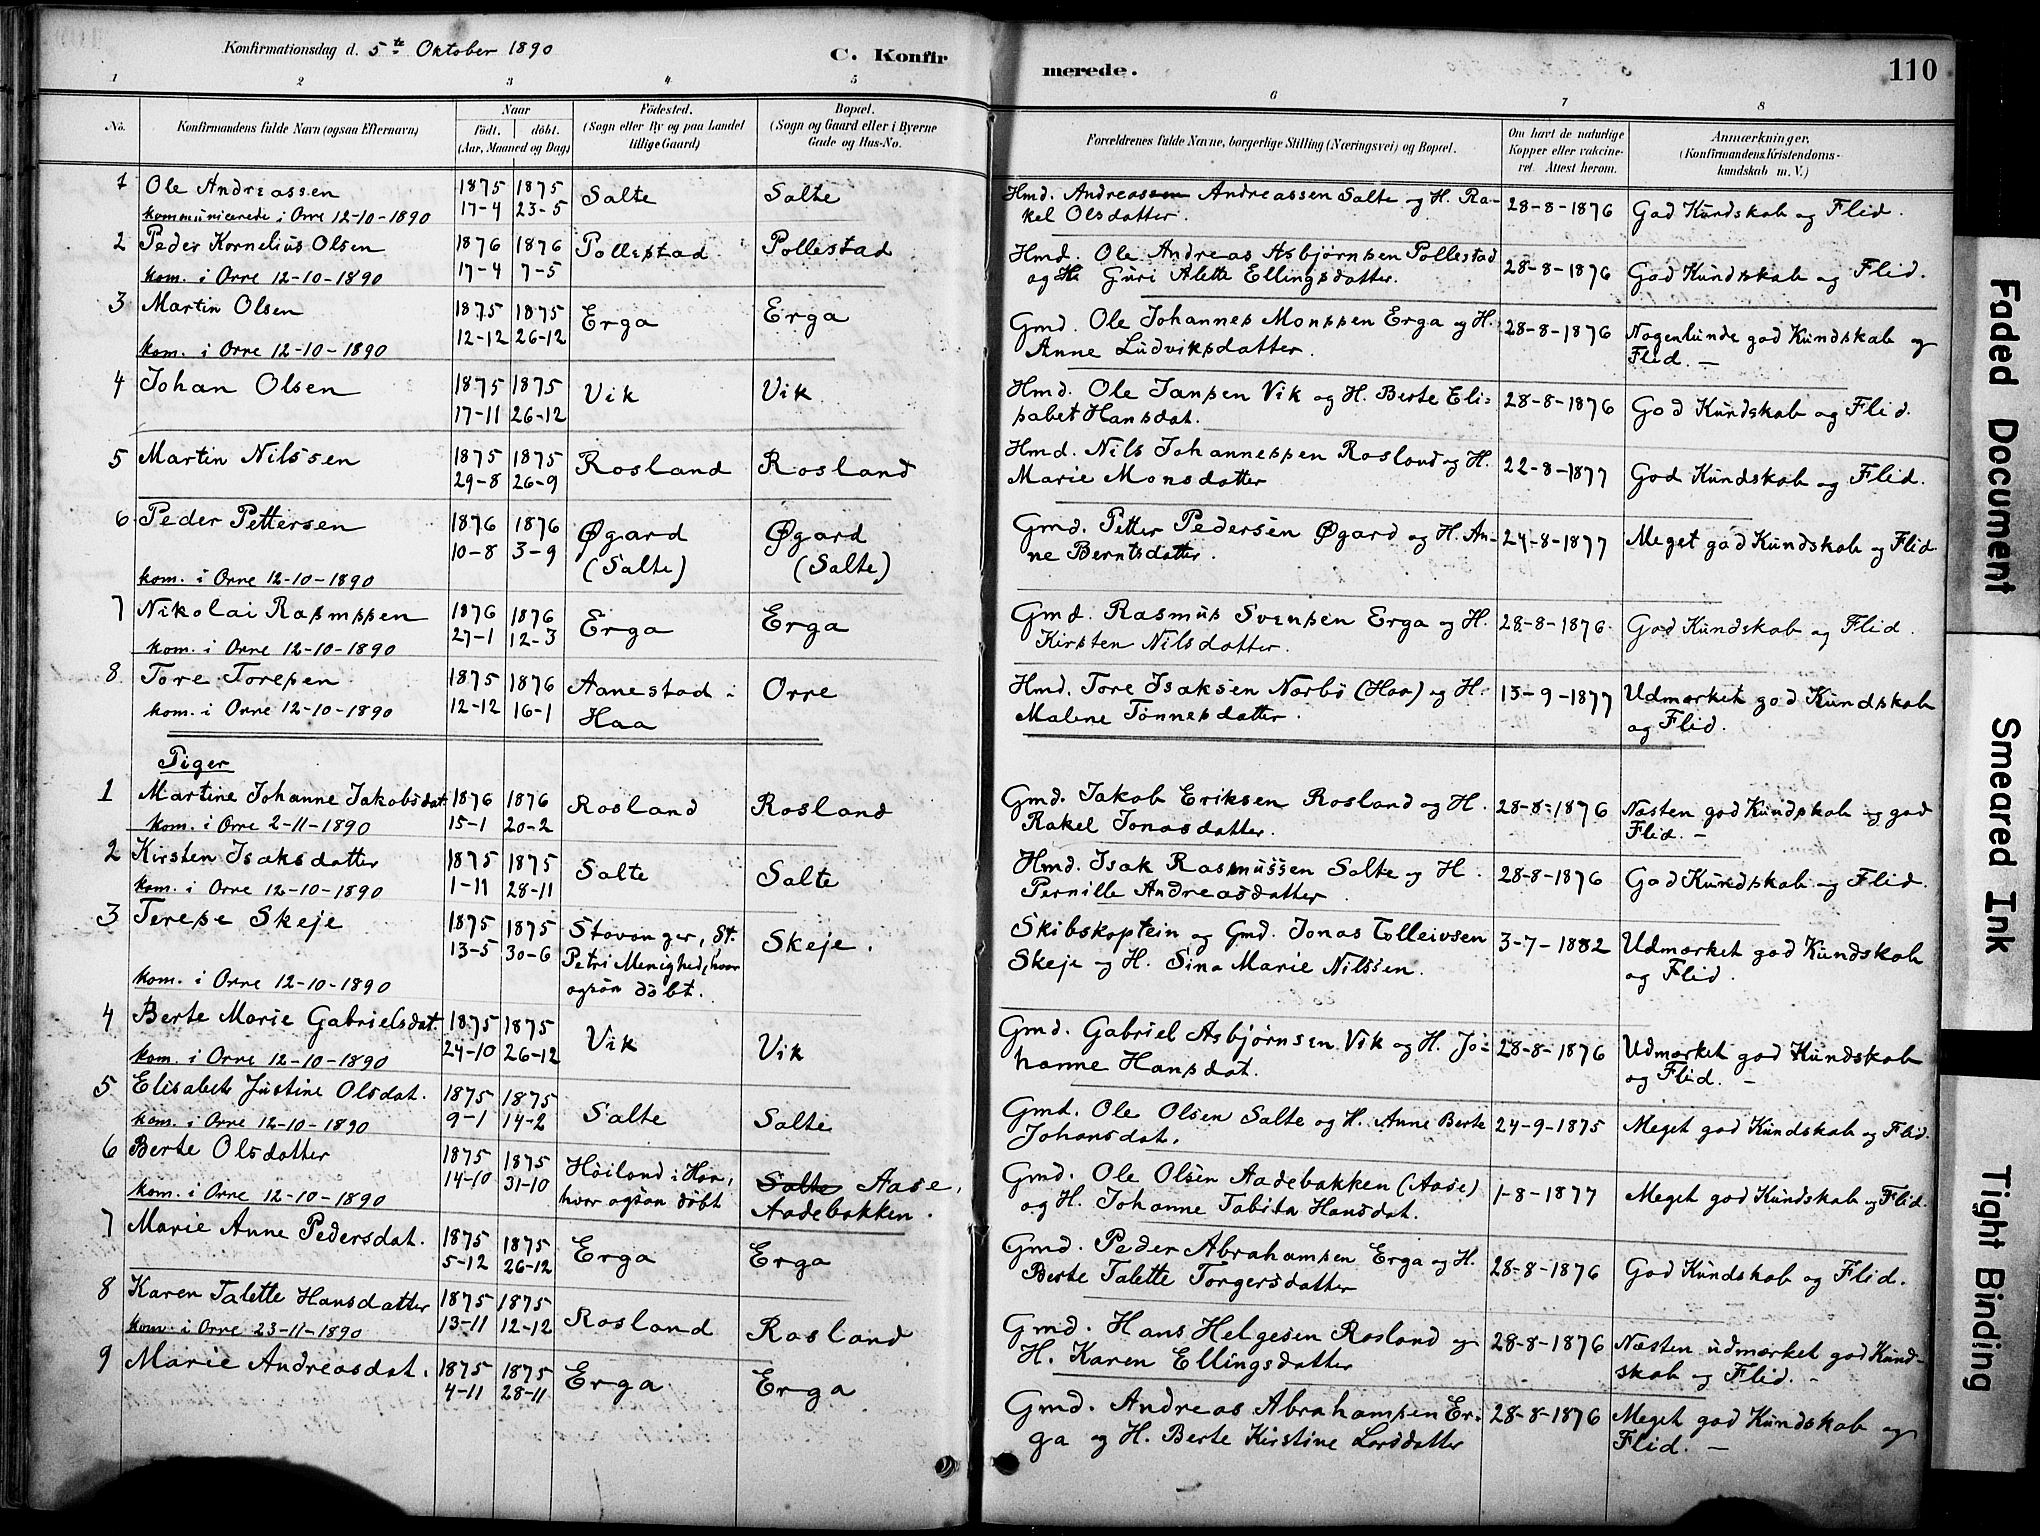 Konfirmationsdag d. 5te Oktober 1890
C. Konfirmerede.
110
1 2 3 4 5 6 7 8
No.
Konfirmandens fulde Navn (ogsaa Efternavn)
Naar
födt. döbt.
(Aar, Maaned og Dag)
Födested.
(Sogn eller By og paa Landet
tillige Gaard)
Bopæl.
(Sogn og Gaard eller i Byerne
Gade og Hus-No.
Forældrenes fulde Navne, borgerlige Stilling (Næringsvei) og Bopæl.
Om havt de naturlige
Kopper eller vakcine-
ret. Attest herom.
Anmærkninger.
(Konfirmandens Kristendoms-
kundskab m. V.)
1 Ole Andreassen 1875 17-4 1875 23-5 Salte Salte Hmd. Andreassen Andreassen Salte og H. Ra-
kommunicerede i Orre 12-10-1890 kel Olsdatter. 28-8-1876 God Kundskab og Flid.
2 Peder Kornelius Olsen 1876 17-4 1876 7-5 Pollestad Pollestad Hmd. Ole Andreas Asbjørnsen Pollestad
kom. i Orre 12-10-1890 og H Guri Alette Ellingsdatter. 28-8-1876 God Kundskab og Flid.
3 Martin Olsen 1875 12-12 1875 26-12 Erga Erga Gmd. Ole Johannes Monssen Erga og H.
kom. i Orre 12-10-1890 Anne Ludviksdatter. 28-8-1876 Nogenlunde god Kundskab og
Flid. —
4 Johan Olsen 1875 17-11 1875 26-12 Vik Vik Hmd. Ole Jansen Vik og H. Berte Eli-
sabet Hansdat. 28-8-1876 God Kundskab og Flid.
5 Martin Nilssen 1875 29-8 1875 26-9 Rosland Rosland Hmd. Nils Johannessen Rosland og H.
Marie Monsdatter 22-8-1877 God Kundskab og Flid.
6 Peder Pettersen 1876 10-8 1876 3-9 Øgard (Salte) Øgard (Salte) Gmd. Petter Pedersen Øgard og H. An-
kom. i Orre 12-10-1890 ne Berntsdatter. 24-8-1877 Meget god Kundskab og Flid
7 Nikolai Rasmssen 1876 27-1 1876 12-3 Erga Erga Gmd. Rasmus Svensen Erga og H.
kom. i Orre 12-10-1890 Kirsten Nilsdatter. 28-8-1876 God Kundskab og Flid.
8 Tore Toresen 1875 12-12 1876 16-1 Aanestad i Haa Orre Hmd. Tore Isaksen Nærbö (Haa) og H.
kom. i Orre 12-10-1890 Malene Tönnesdatter. 13-9-1877 Udmærket god Kundskab
og Flid.
Piger
1 Martine Johanne Jakobsdat. 1876 15-1 1876 20-2 Rosland Rosland Gmd. Jakob Eriksen Rosland og H.
kom. i Orre 2-11-1890 Rakel Jonasdatter. 28-8-1876 Næsten god Kundskab og god
Flid. —
2 Kirsten Isaksdatter 1875 1-11 1875 28-11 Salte Salte Hmd. Isak Rasmussen Salte og H.
kom. i Orre 12-10-1890 Pernille Andreasdatter 28-8-1876 God Kundskab og Flid.
3 Terese Skeje 1875 13-5 1875 30-6 Stavanger, St. Petri Menighed, hvor ogsaa döbt. Skeje. Skibskaptein og Gmd. Jonas Tolleivsen
kom. i Orre 12-10-1890 Skeje og H. Sina Marie Nilssen. 3-7-1882 Udmærket god Kundskab
og Flid.
4 Berte Marie Gabrielsdat. 1875 24-10 1875 26-12 Vik Vik Gmd. Gabriel Asbjørnsen Vik og H. Jo-
kom. i Orre 12-10-1890 hanne Hansdat. 28-8-1876 Udmærket god Kundskab
og Flid. —
5 Elisabeth Justine Olsdat. 1875 9-1 1875 14-2 Salte Salte Gmd. Ole Olsen Salte og H. Anne Berte
kom. i Orre 12-10-1890 Johansdat. 24-9-1875 Meget god Kundskab og Flid.
6 Berte Olsdatter 1875 14-10 1875 31-10 Höiland i Haa, hvor ogsaa döbt Salte Aase, Aadebakken. Gmd. Ole Olsen Aadebakken (Aase)
kom. i Orre 12-10-1890 og H. Johanne Tabita Hansdat. 1-8-1877 Meget god Kundskab og Flid.
7 Marie Anne Pedersdat. 1875 5-12 1875 26-12 Erga Erga Gmd. Peder Abrahamsen Erga og H.
Berte Talette Torgersdatter 28-8-1876 God Kundskab og Flid.
8 Karen Talette Hansdatter 1875 13-11 1875 12-12 Rosland Rosland Gmd. Hans Helgesen Rosland og
kom. i Orre 23-11-1890 H. Karen Ellingsdatter 28-8-1876 Næsten udmærket god Kund-
skab og Flid. -
9 Marie Andreasdat. 1875 4-11 1875 28-11 Erga Erga Gmd. Andreas Abrahamsen Er-
ga og H. Berte Kirstine Larsdatter 28-8-1876 Meget god Kundskab og
Flid. —
Faded Document
Smeared Ink
Tight Binding